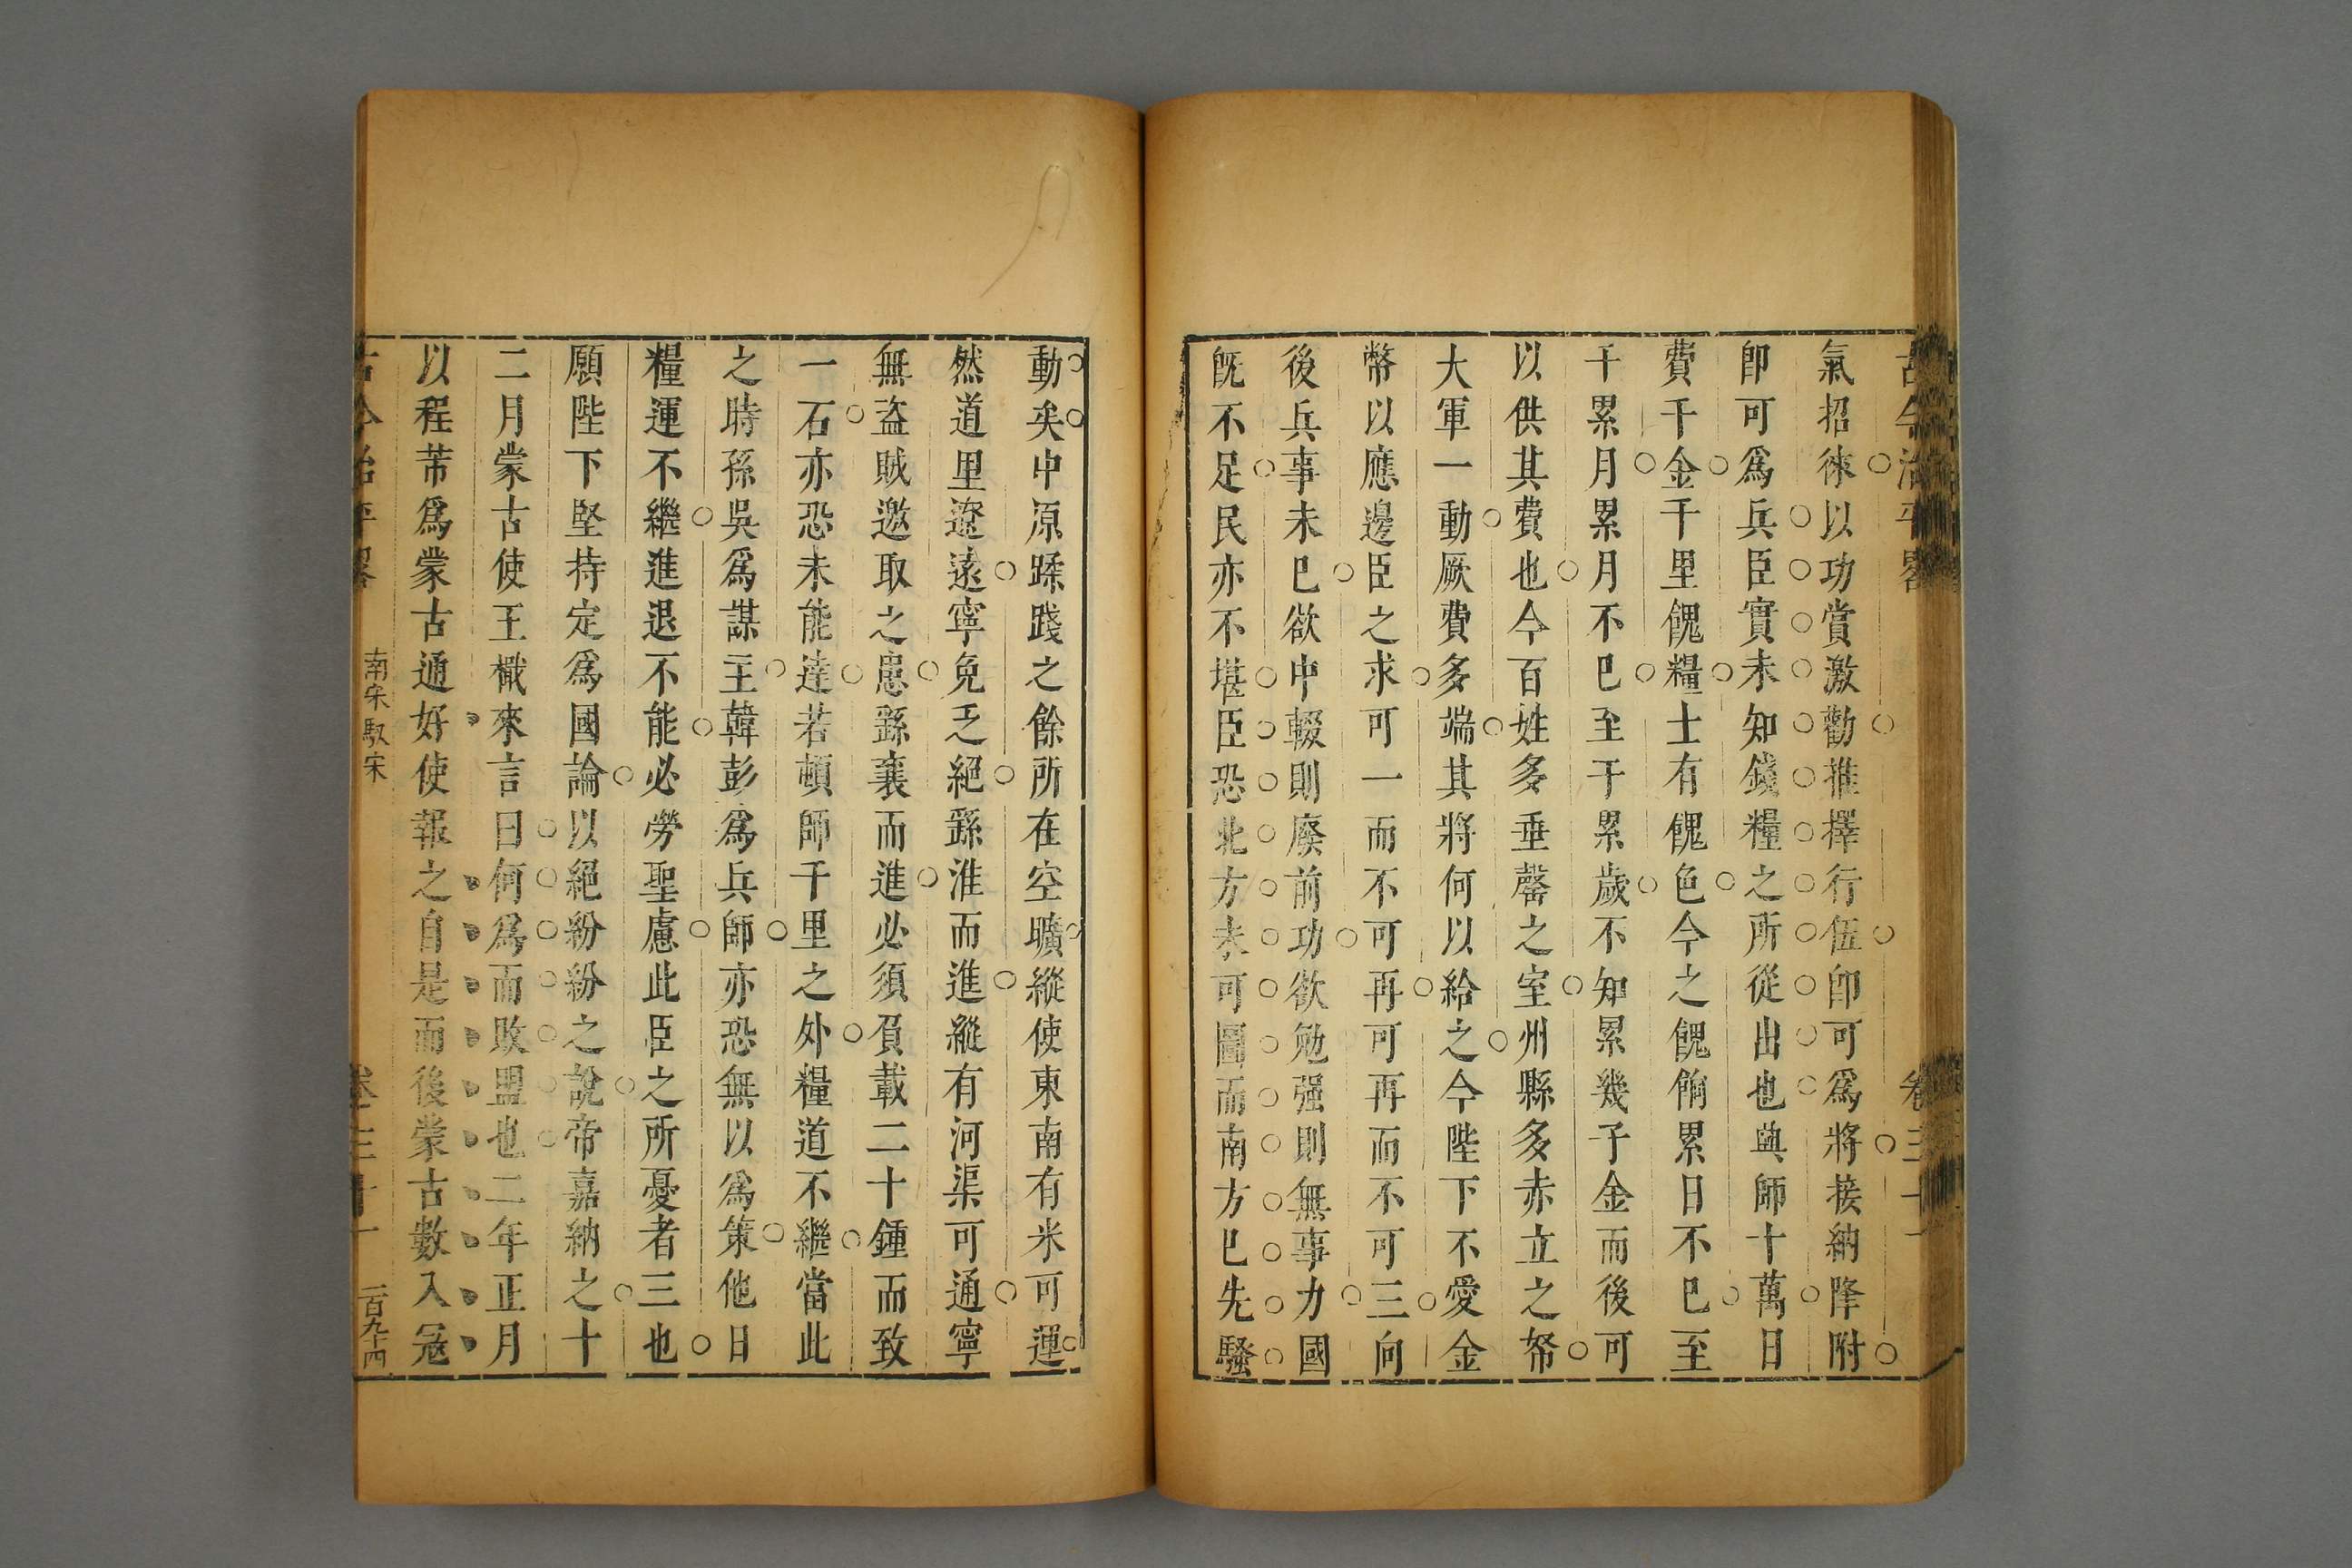 古今治平畧 卷三十一
氣招徠以功賞激勸推擇行伍卽可爲將接納降附
卽可爲兵臣實未知錢糧之所從出也興師十萬日
費千金千里餽糧士有餽色今之餽餉累日不已至
千累月累月不已至千累歲不知累幾千金而後可
以供其費也今百姓多垂罄之室州縣多赤立之帑
大軍一動厥費多端其將何以給之今陛下不愛金
幣以應邊臣之求可一而不可再可再而不可三向
後兵事未已欲中輟則廢前功欲勉强則無事力國
旣不足民亦不堪臣恐北方未可圖而南方已先騷
動矣中原蹂踐之餘所在空曠縱使東南有米可運
然道里遼遠寧免乏絕繇淮而進縱有河渠可通寧
無盜賊邀取之患繇襄而進必須負載二十鍾而致
一石亦恐未能達若頓師千里之外糧道不繼當此
之時孫吳爲謀主韓彭爲兵師亦恐無以爲策他日
糧運不繼進退不能必勞聖慮此臣之所憂者三也
願陛下堅持定爲國論以絕紛紛之說帝嘉納之十
二月蒙古使王檝來言曰何爲而敗盟也二年正月
以程芾爲蒙古通好使報之自是而後蒙古數入冦
古今治平畧 南宋馭宋 卷三十一 一百九十四